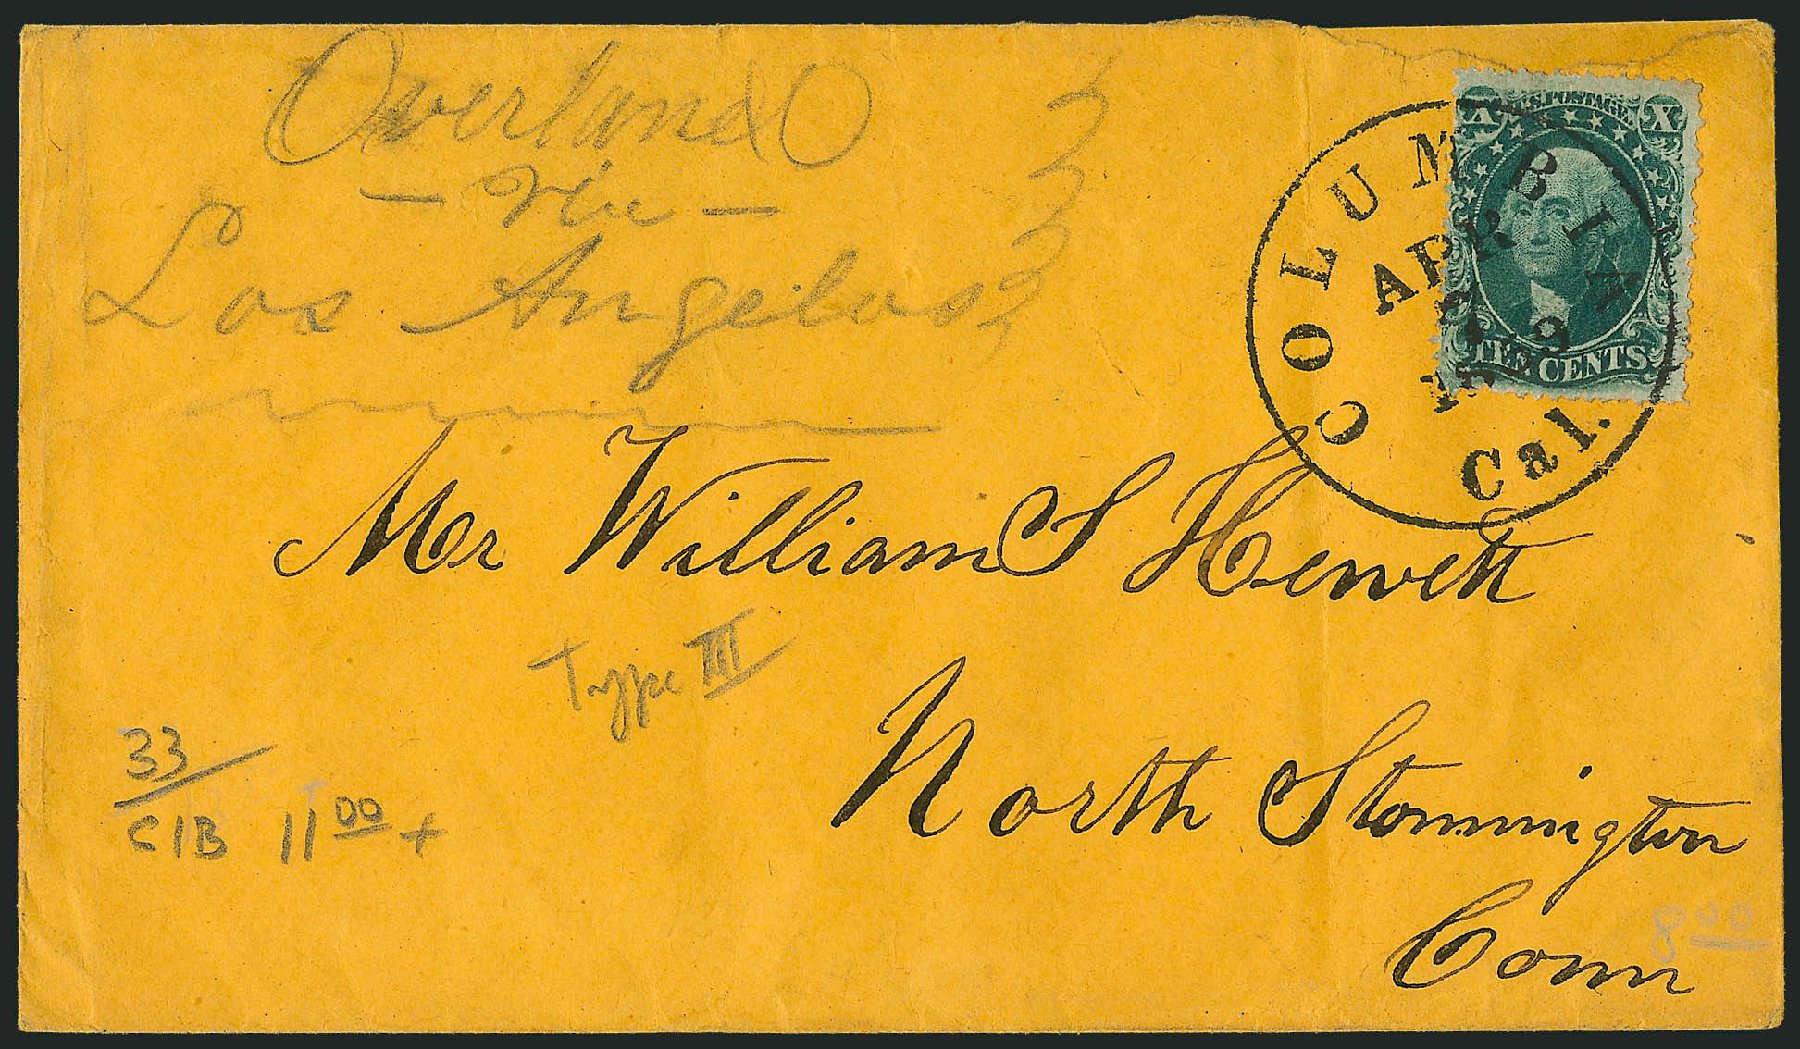 Overland
– Via –
Los Angelos
U.S. POSTAGE
X X
TEN CENTS
COLUMBIA
APR
Cal.
Mr William S Hewitt
Type III
North Stonnington
Conn
33
C1B 11 00 +
8 00